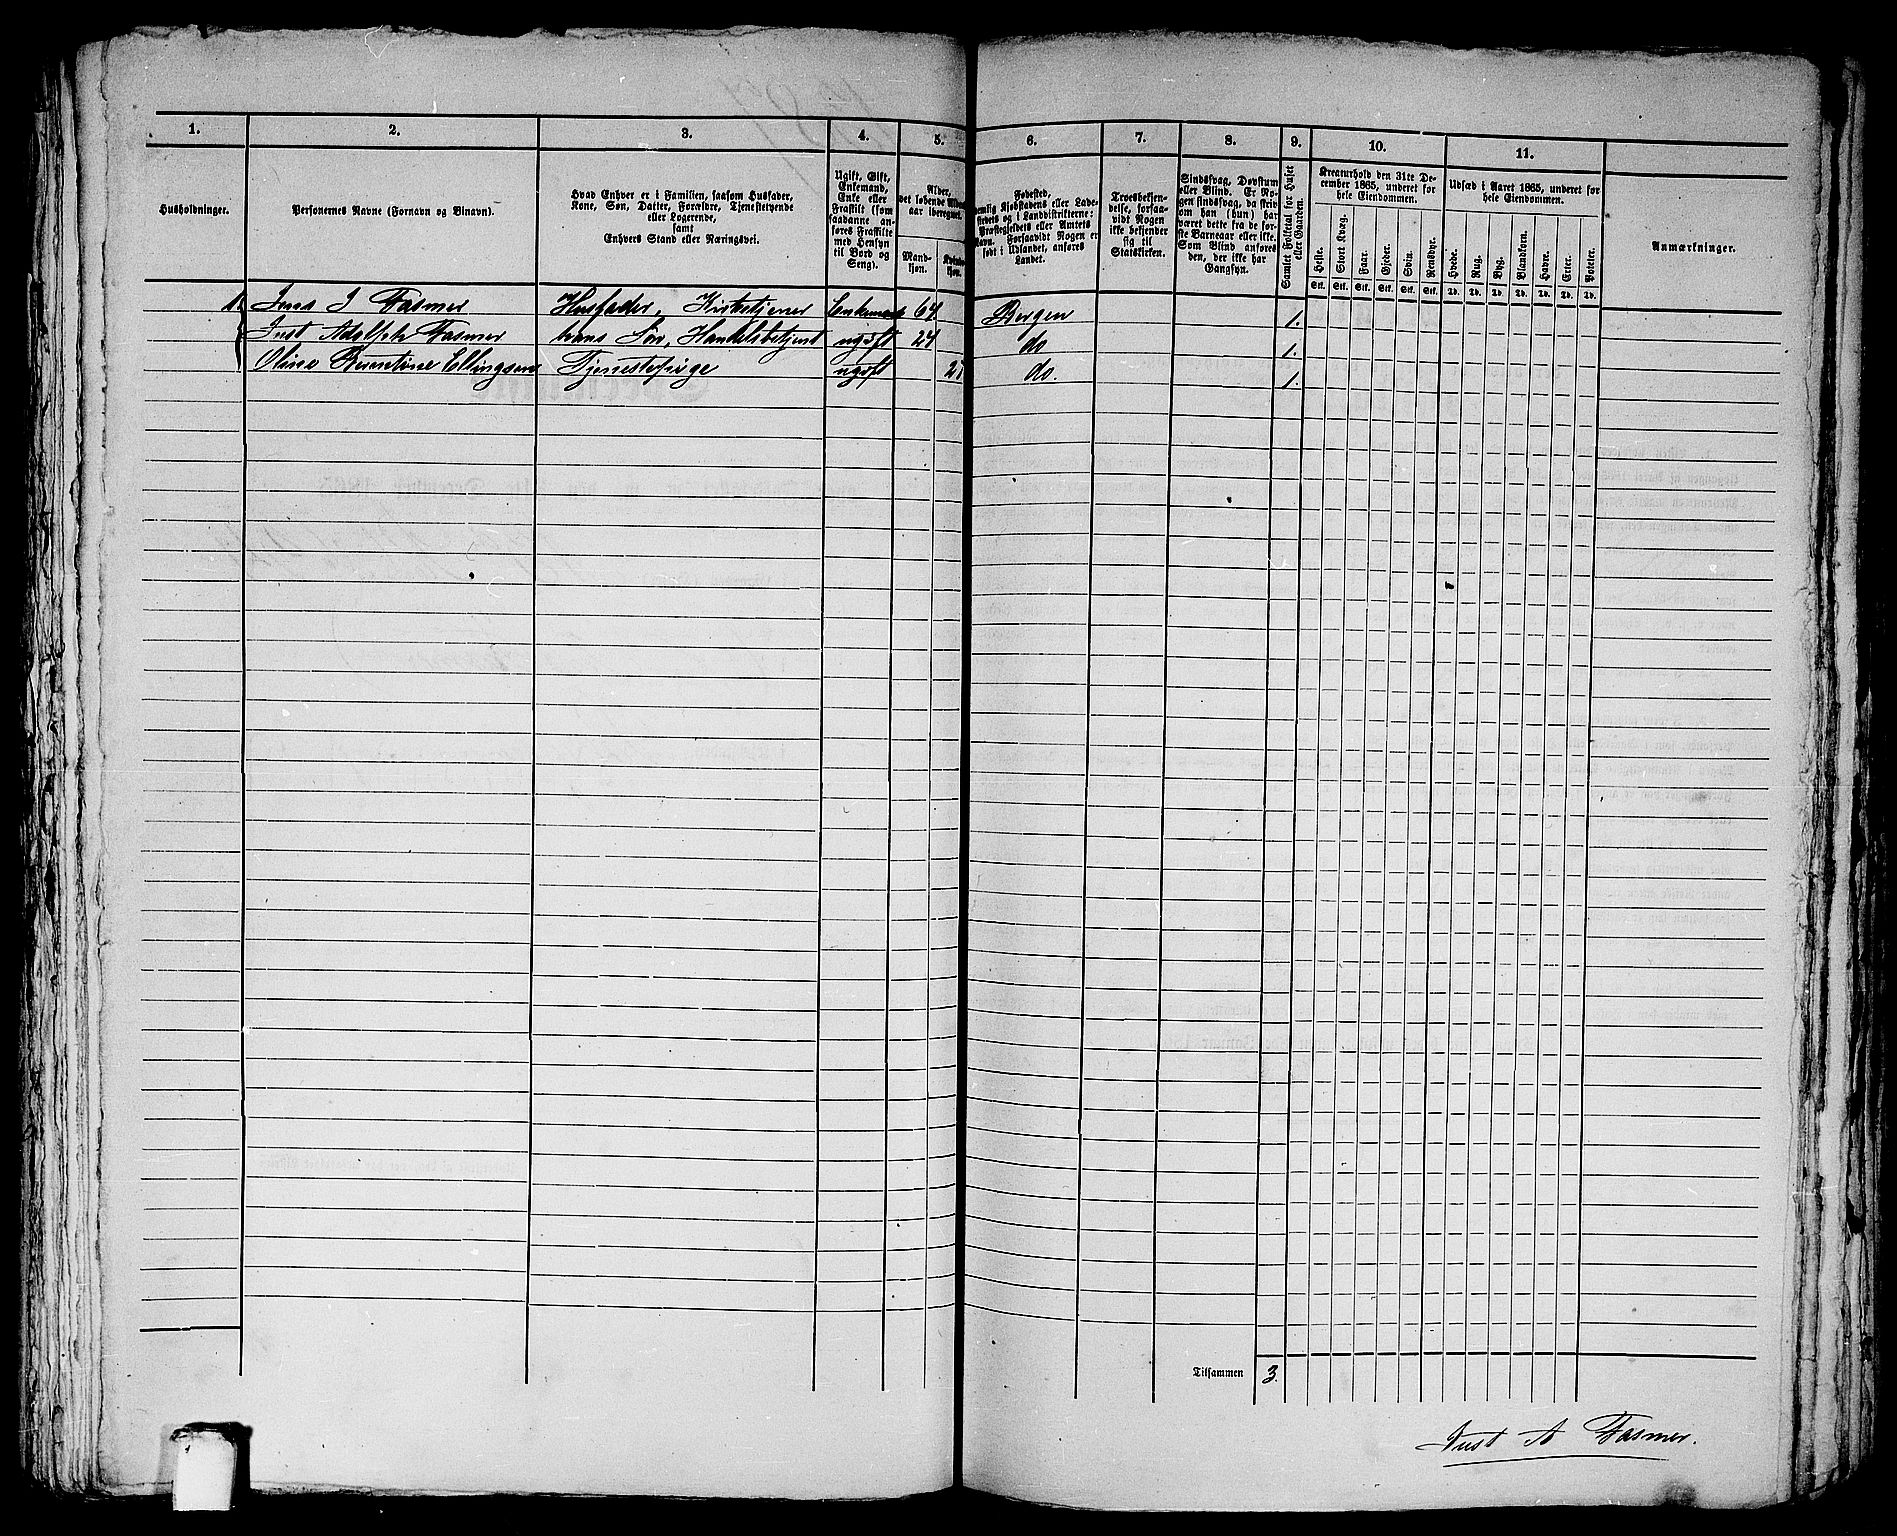 1. 2. 3. 4. 5. 6. 7. 8. 9. 10. 11.
Husholdninger.
Personernes Navne (Fornavn og Binavn).
Hvad Enhver er i Familien, saasom Husfader,
Kone, Søn, Datter, Forældre, Tjenestetyende
eller Logerende,
samt
Enhvers Stand eller Næringsvei.
Ugift, Gift,
Enkemand,
Enke eller
Fraskilt (som
saadanne an-
føres Fraskilte
med Hensyn
til Bord og
Seng).
Alder,
det løbende Alders-
aar iberegnet.
Mand-
kjøn.
Kvinde-
kjøn.
Fødested,
nemlig Kjøbstadens eller Lade-
stedets og i Landdistrikterne:
Præstegjeldets eller Amtets
Navn. Forsaavidt Nogen er
født i Udlandet, anføres
Landet.
Troesbekjen-
delse, forsaa-
vidt Nogen
ikke bekjender
sig til
Statskirken.
Sindssvag, Døvstum
eller Blind. Er No-
gen sindssvag, da skriv
om han (hun) har
været dette fra de før-
ste Barneaar eller ikke.
Som Blind anføres
den, der ikke har
Gangsyn.
Samlet Folketal for Huset
eller Gaarden.
Kreaturhold den 31te De-
cember 1865, underet for
hele Eiendommen.
Heste. Stort Kvæg. Faar. Gjeder. Svin. Rensdyr.
Stk. Stk. Stk. Stk. Stk. Stk.
Udsæd i Aaret 1865, underet for
hele Eiendommen.
Hvede. Rug. Byg. Blandkorn. Havre. Erter. Poteter.
Td. Td. Td. Td. Td. Td. Td.
Anmærkninger.
1 Jens J Fasmer Husfader, Kirketjener Enkemand 64 Bergen 1.
Just Adolph Fasmer hans Søn, Handelsbetjent ugift 24 do 1.
Oline Ellingsen Tjenestepige ugift do. 1.
Tilsammen 3.
Just A Fasmer.